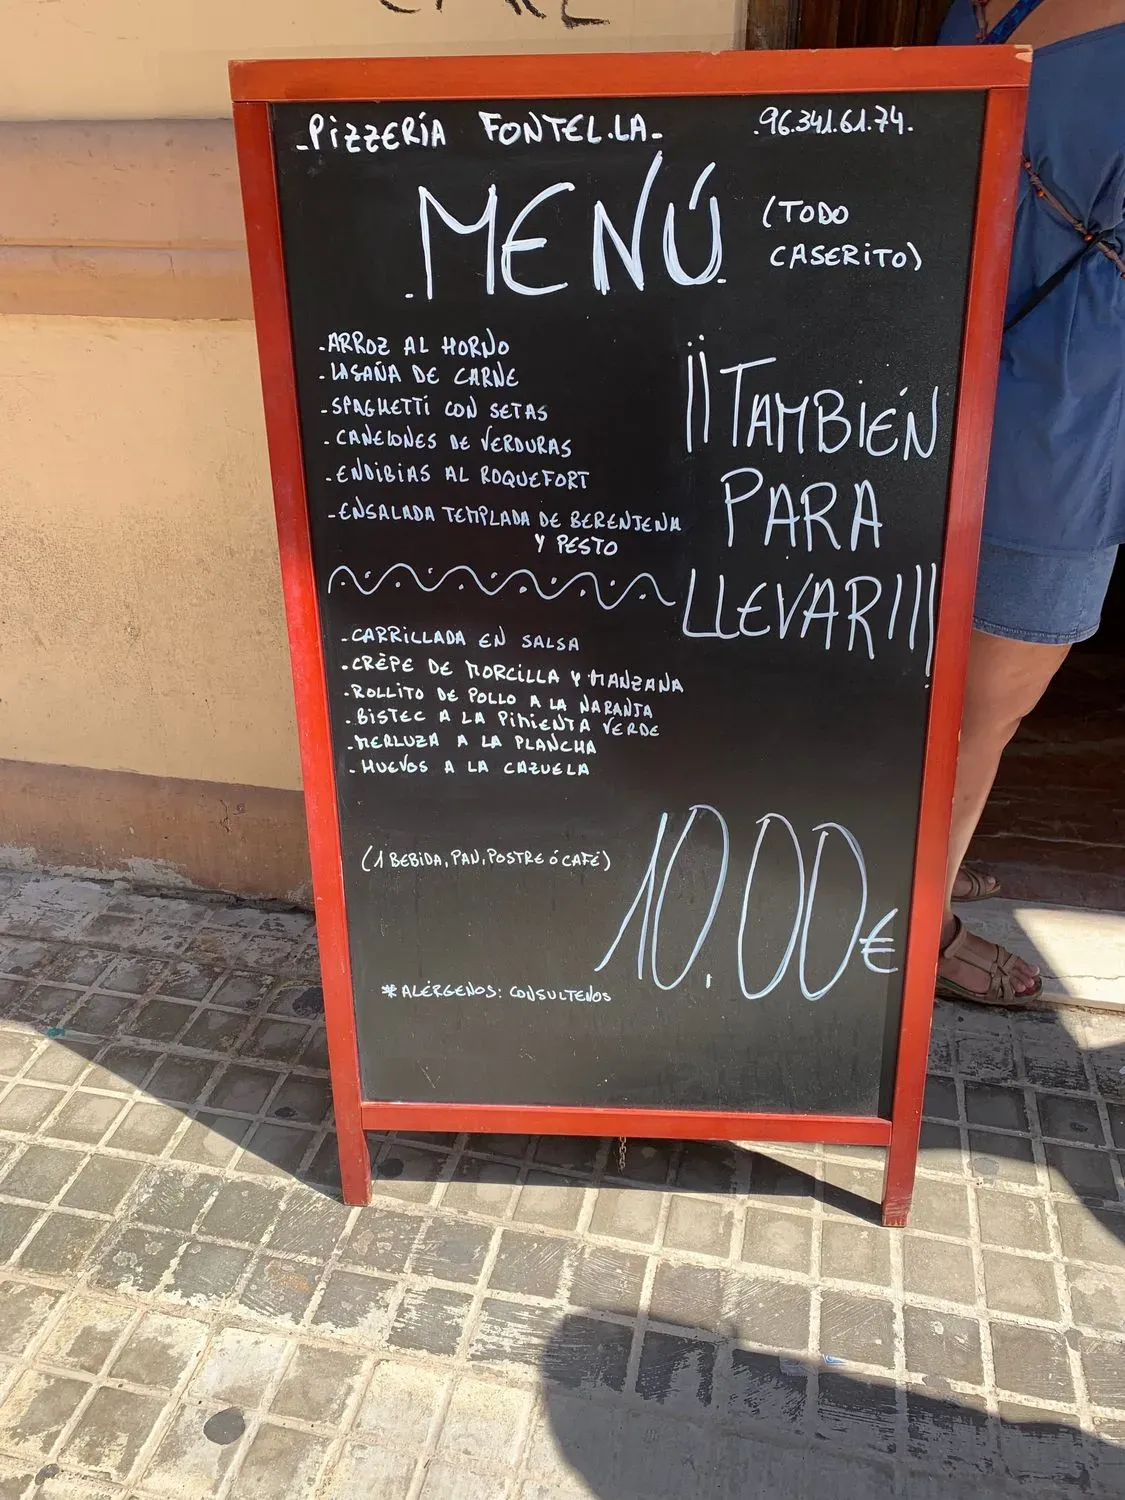 -PIZZERÍA FONTEL.LA-
.96.341.61.74.
.MENÚ.
(TODO
CASERITO)
-ARROZ AL HORNO
-LASAÑA DE CARNE
-SPAGHETTI CON SETAS
-CANELONES DE VERDURAS
-ENDIBIAS AL ROQUEFORT
-ENSALADA TEMPLADA DE BERENJENA
Y PESTO
¡¡TAMBIÉN
PARA
LLEVAR!!!
-CARRILLADA EN SALSA
-CRÊPE DE MORCILLA Y MANZANA
-ROLLITO DE POLLO A LA NARANJA
-BISTEC A LA PIMIENTA VERDE
-MERLUZA A LA PLANCHA
-HUEVOS A LA CAZUELA
(1 BEBIDA, PAN, POSTRE Ó CAFÉ)
10.00€
*ALÉRGENOS: CONSULTENOS